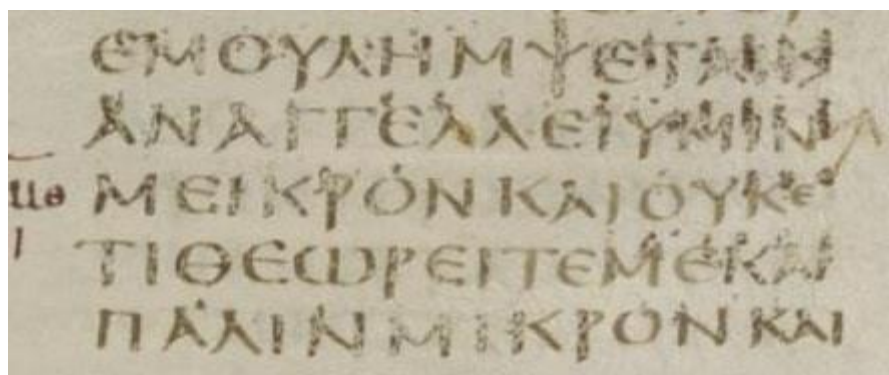 ΕΜΟΥΛΗΜΨΕΤΑΙΚ
ΑΝΑΓΓΕΛΛΕΙΥΜΙΝ
ΜΕΙΚΡΟΝΚΑΙΟΥΚΕ
ΤΙΘΕΩΡΕΙΤΕΜΕΚΑΙ
ΠΑΛΙΝΜΙΚΡΟΝΚΑΙ